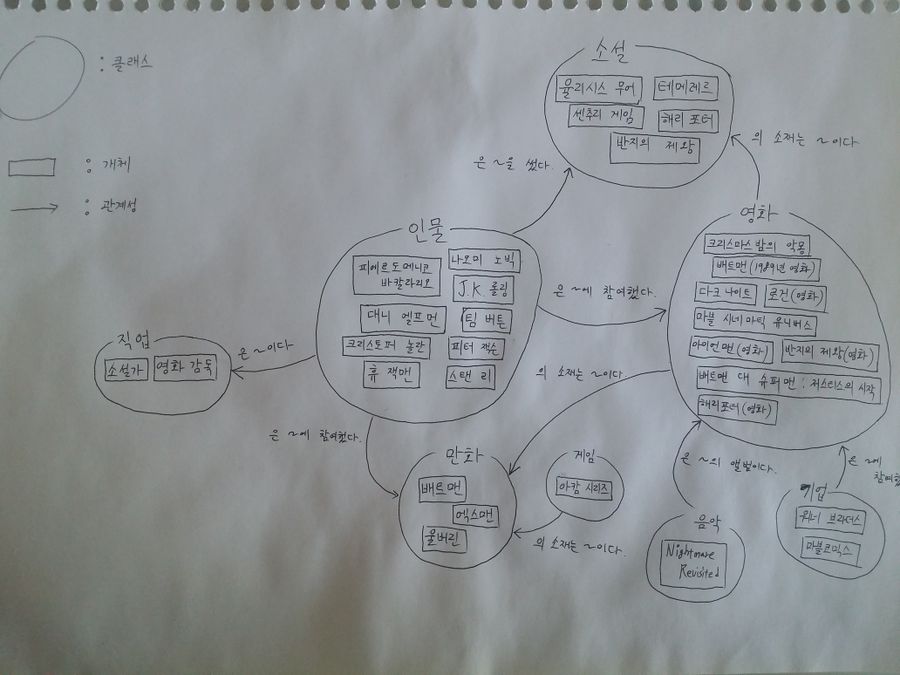 : 클래스
: 개체
: 관계성
소설
율리시스 무어
테메레르
센추리 게임
해리 포터
반지의 제왕
은 ~을 썼다.
의 소재는 ~이다
인물
피에르도메니코
바칼라리오
나오미 노빅
J.K. 롤링
대니 엘프먼
팀 버튼
크리스토퍼 놀란
피터 잭슨
휴 잭맨
스탠 리
은 ~에 참여했다.
영화
크리스마스 밤의 악몽
배트맨 (1989년 영화)
다크 나이트
로건 (영화)
마블 시네마틱 유니버스
아이언맨 (영화)
반지의 제왕 (영화)
배트맨 대 슈퍼맨 : 저스티스의 시작
해리포터 (영화)
직업
소설가
영화 감독
은 ~이다
의 소재는 ~이다.
은 ~에 참여했다.
만화
배트맨
엑스맨
울버린
게임
아캄 시리즈
의 소재는 ~이다.
은 ~의 앨범이다.
음악
Nightmare
Revisited
은 ~에
참여했
기업
워너 브라더스
마블코믹스